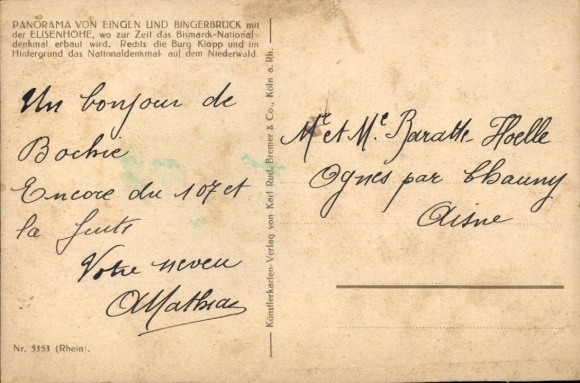 PANORAMA VON BINGEN UND BINGERBRÜCK mit
der ELISENHÖHE, wo zur Zeit das Bismarck-National-
denkmal erbaut wird. Rechts die Burg Klopp und im
Hintergrund das Nationaldenkmal auf dem Niederwald.
Un bonjour de
Bochie
Encore du 107 et
la
Votre neveu
AMathias
Nr. 5353 (Rhein).
Künstlerkarten-Verlag von Karl Rud. Bremer & Co., Köln a. Rh.
Mr et Me Baratte Hoelle
Ognes par Chauny
Aisne